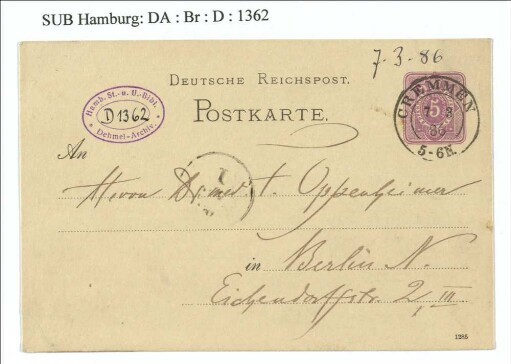 SUB Hamburg: DA : Br : D : 1362
7-3-86
DEUTSCHE REICHSPOST.
POSTKARTE.
Hamb. St.- u. U.-Bibl.
D 1362
* Dehmel-Archiv. *
CREMMEN
7 3
86
5-6N.
5
An
Herrn Dr. med. Oppenheimer
in Berlin N.
Eichendorffstr. 2, III
1285